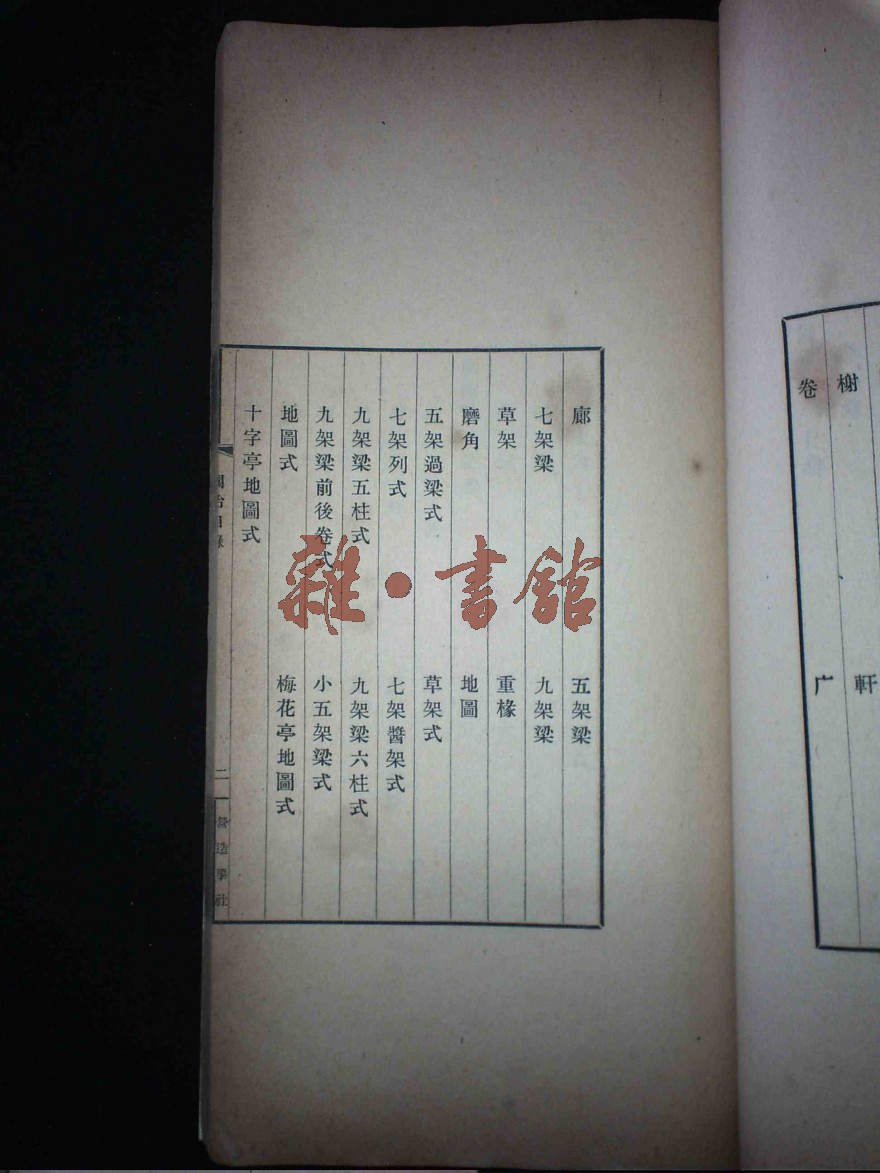 軒
榭
广
卷
廊
五架梁
七架梁
九架梁
草架
重椽
磨角
地圖
五架過梁式
草架式
七架列式
七架醬架式
九架梁五柱式
九架梁六柱式
九架梁前後卷式
小五架梁式
地圖式
梅花亭地圖式
十字亭地圖式
二
營造學社
雜·書館